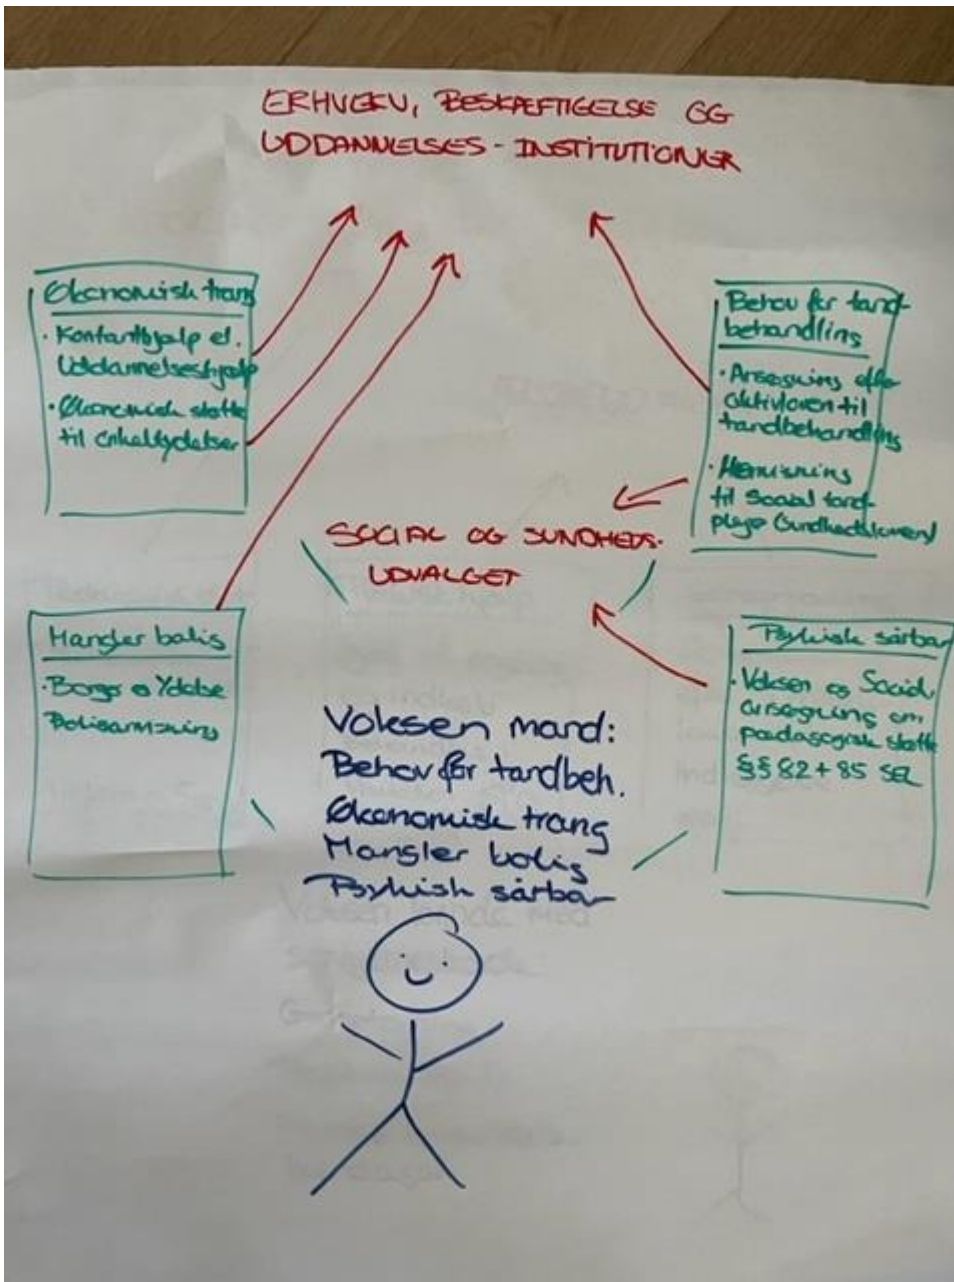 ERHVERV, BESKÆFTIGELSE OG
UDDANNELSES-INSTITUTIONER
Økonomisk trang
· Kontanthjælp el.
Uddannelseshjælp
· Økonomisk støtte
til enkeltydelser
Behov for tand-
behandling
· Ansøgning efter
aktivloven til
tandbehandling
· Henvisning
til Social tand-
pleje (Sundhedsloven)
SOCIAL OG SUNDHEDS-
UDVALGET
Mangler bolig
· Borger og Ydelse
Boliganvisning
Psykisk sårbar
· Voksen og Social,
ansøgning om
pædagogisk støtte
§§ 82+85 SEL
Voksen mand:
Behov for tandbeh.
Økonomisk trang
Mangler bolig
Psykisk sårbar